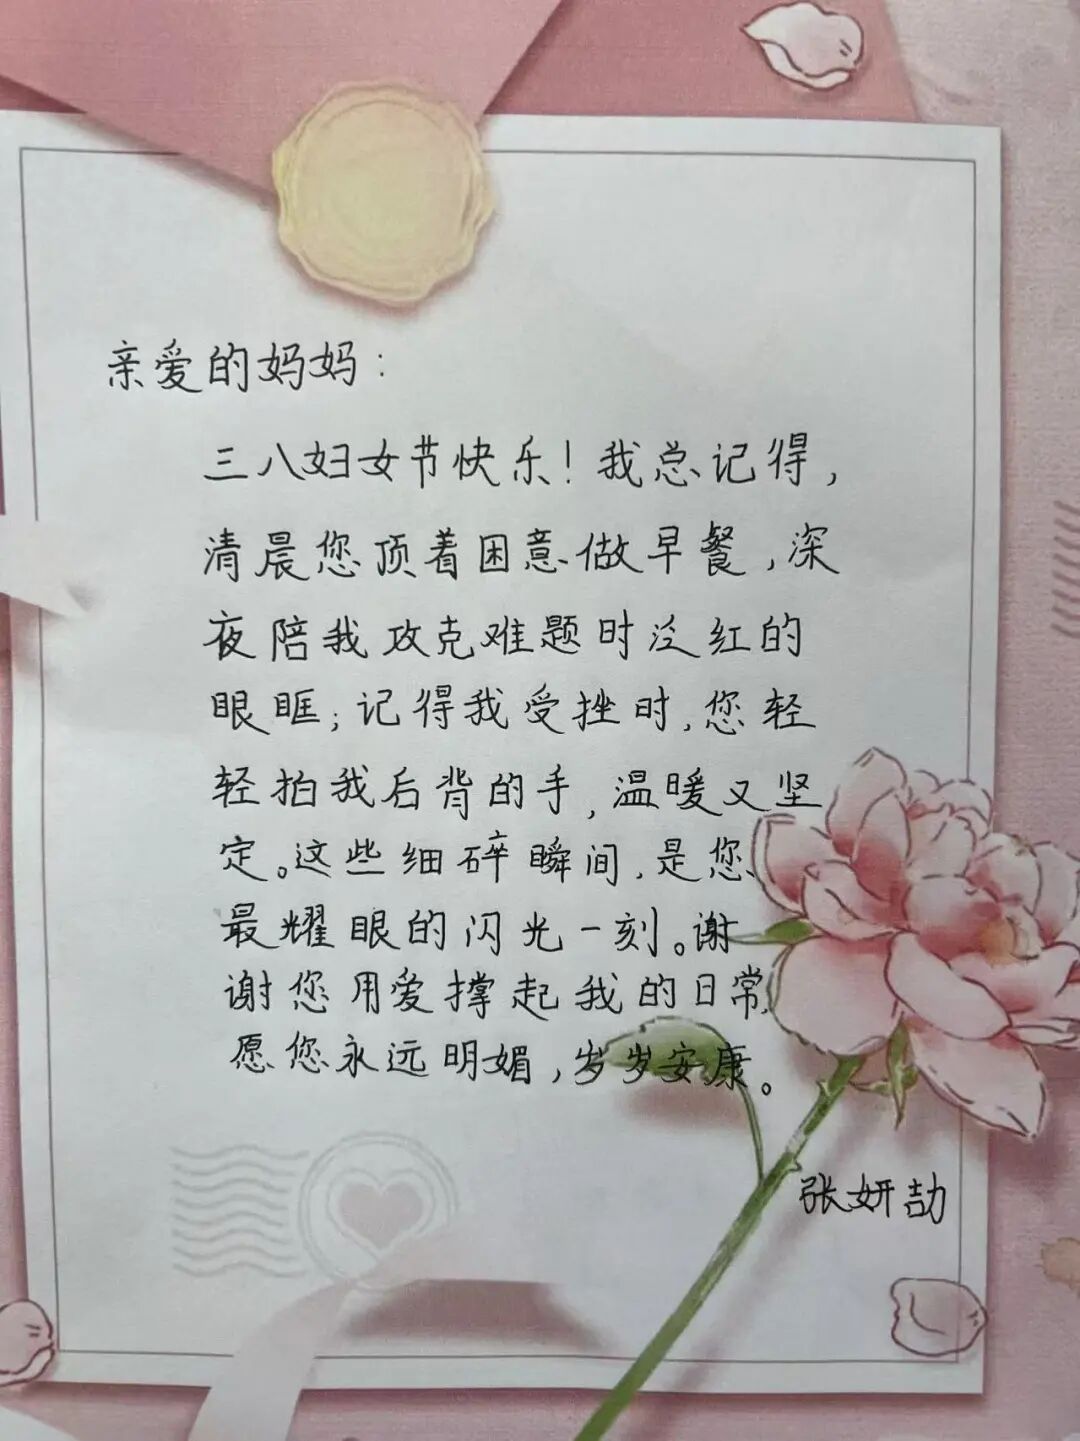 亲爱的妈妈：
三八妇女节快乐！我总记得，
清晨您顶着困意做早餐，深
夜陪我攻克难题时泛红的
眼眶；记得我受挫时，您轻
轻拍我后背的手，温暖又坚
定。这些细碎瞬间，是您
最耀眼的闪光一刻。谢
谢您用爱撑起我的日常，
愿您永远明媚，岁岁安康。
张妍劼